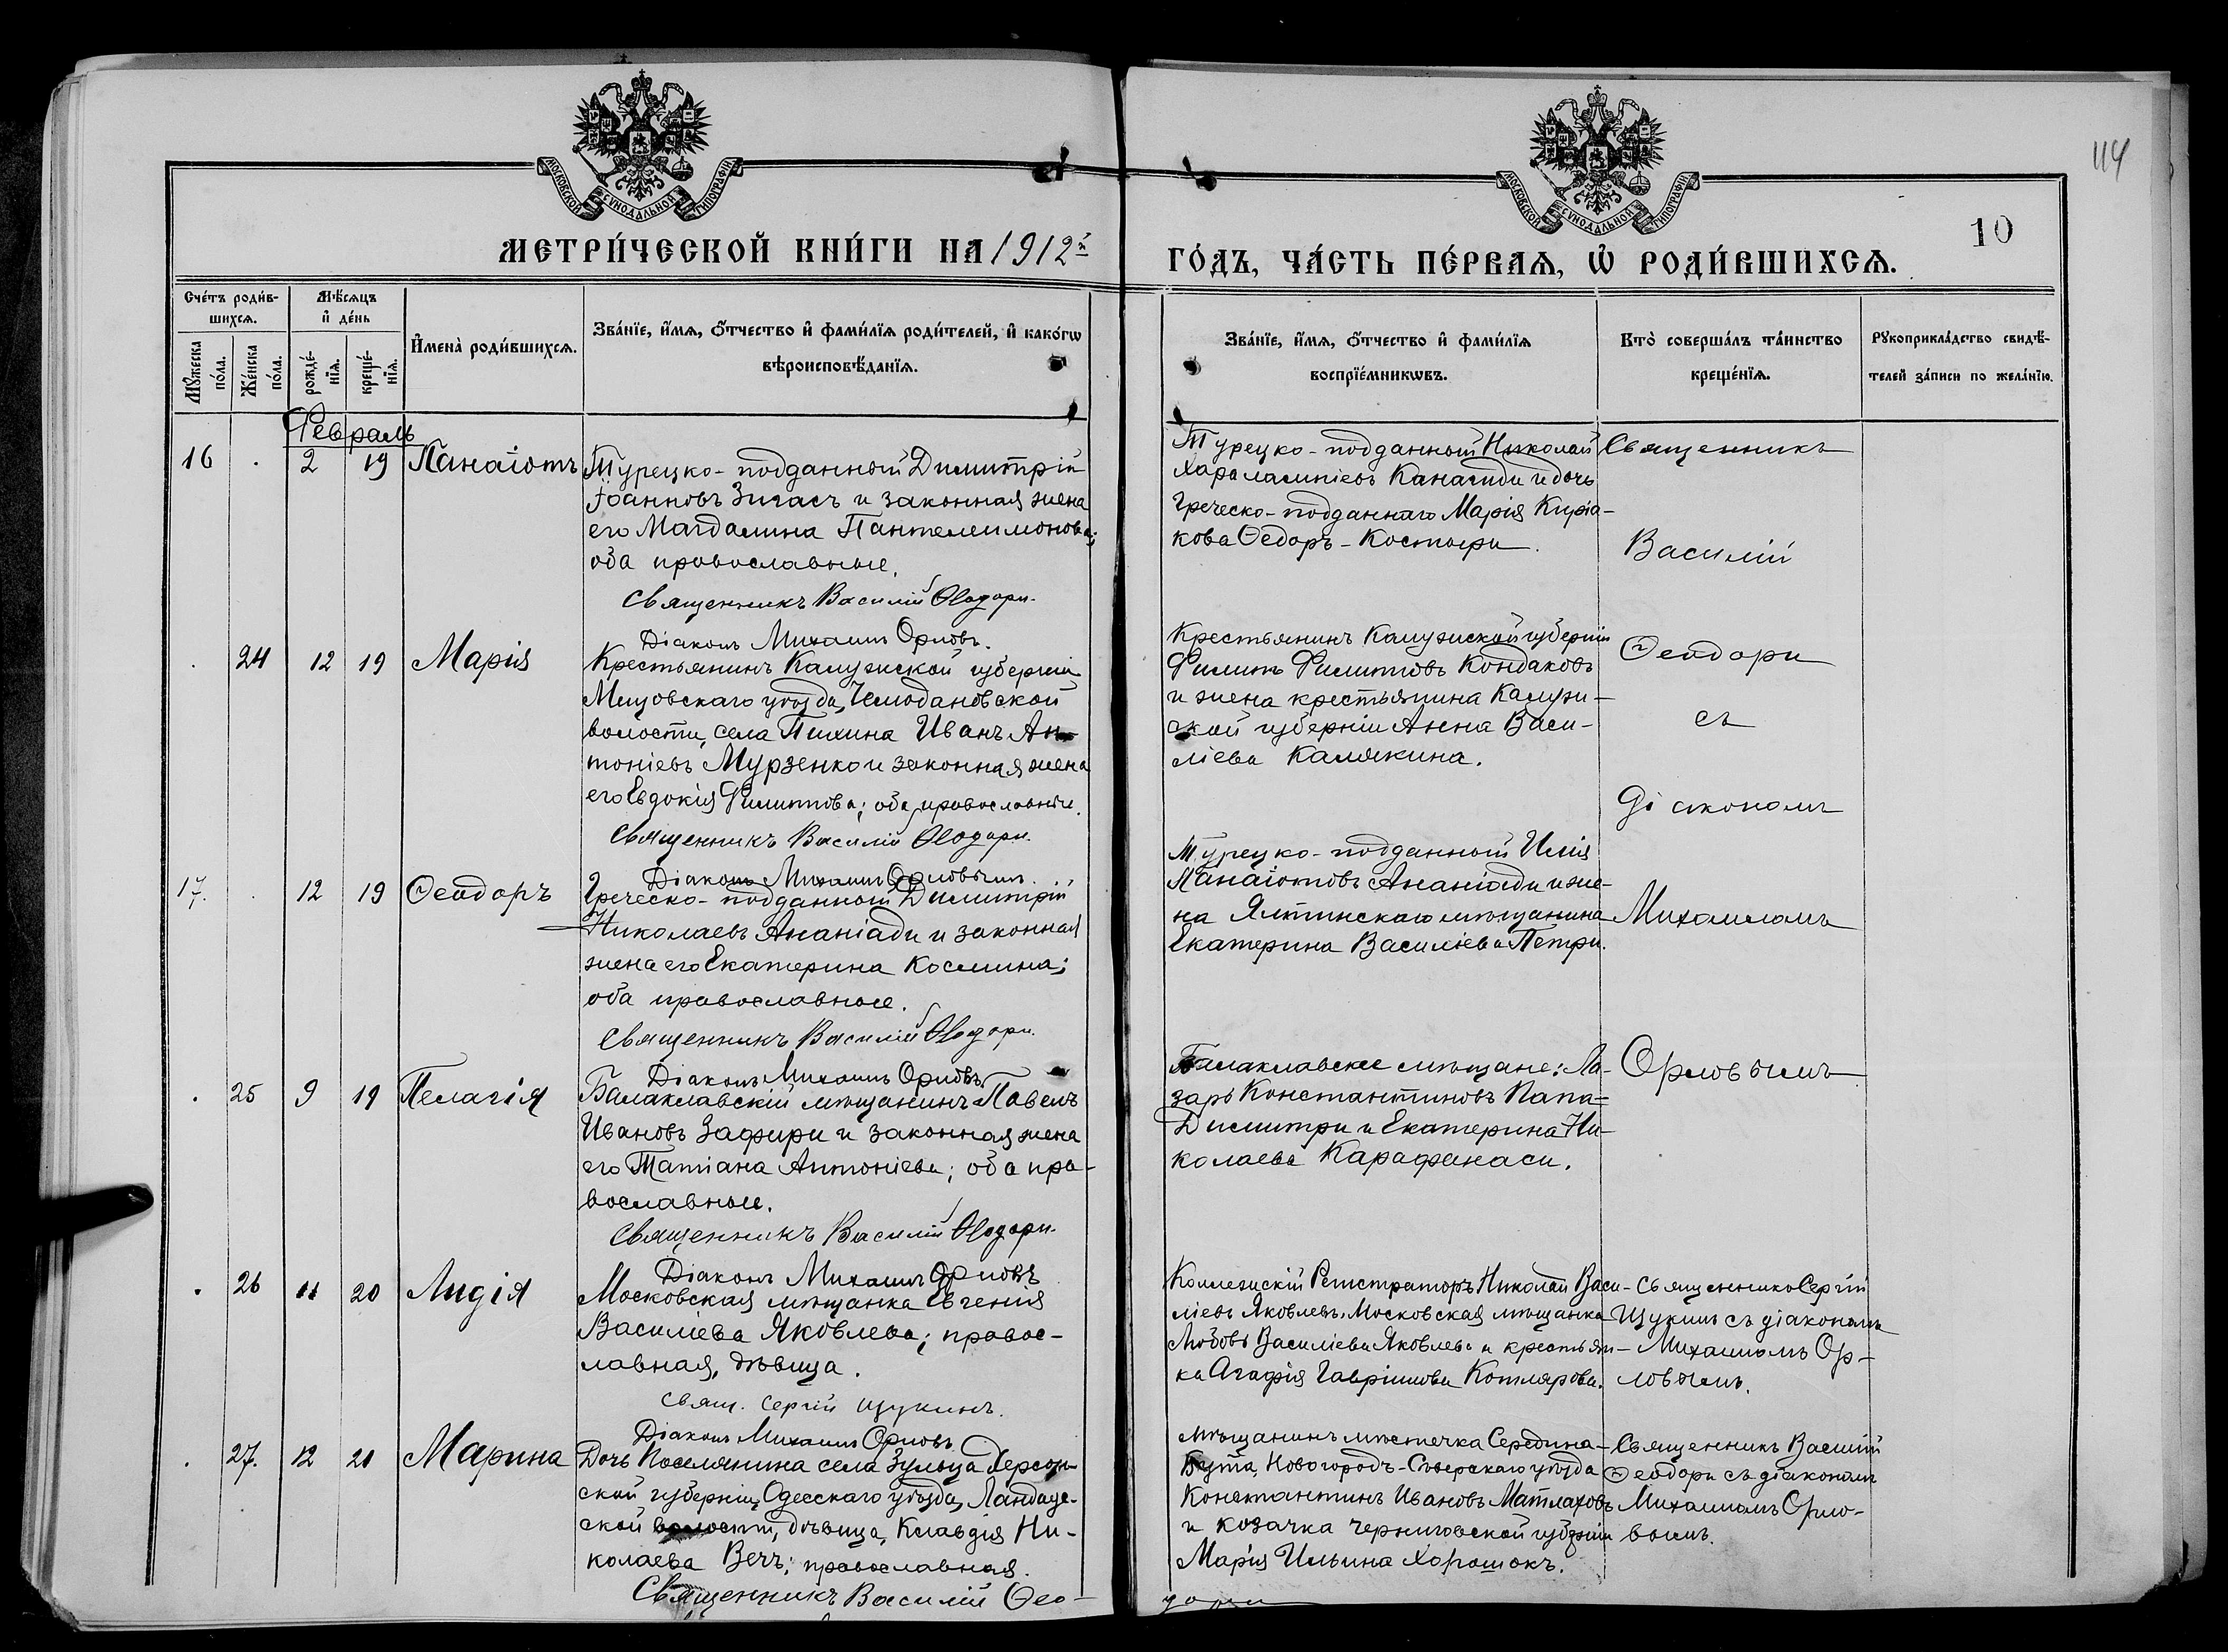 114
10
МОСКОВСКОЙ СУНОДАЛЬНОЙ ТИПОГРАФІИ
МОСКОВСКОЙ СУНОДАЛЬНОЙ ТИПОГРАФІИ
МЕТРИ́ЧЕСКОЙ КНИ́ГИ НА 1912й
ГО́ДЪ, ЧА́СТЬ ПЕ́РВАѦ, Ѡ҆ РОДИ́ВШИХСѦ.
Сче́тъ роди́в-
шихсѧ.
Мꙋ́жеска по́ла.
Же́нска по́ла.
Мѣ́сѧцъ
и҆ де́нь
рожде́-
нїѧ.
креще́-
нїѧ.
И҆мена̀ роди́вшихсѧ.
Зва́нїе, и҆́мѧ, ѻ҆́тчество и҆ фами́лїѧ роди́телей, и҆ како́гѡ
вѣроисповѣ́данїѧ.
Зва́нїе, и҆́мѧ, ѻ҆́тчество и҆ фами́лїѧ
воспрїе́мникѡвъ.
Кто̀ соверша́лъ та́инство
креще́нїѧ.
Рꙋкоприкла́дство свидѣ́-
телей за́писи по жела́нїю.
Февраль
16 . 2 19 Панаіотъ
Турецко-подданный Димитрій
Іоанновъ Зигасъ и законная жена
его Магдалина Пантелеимонова;
оба православные.
Священникъ Василій Ѳеодори.
Діаконъ Михаилъ Орловъ.
Турецко-подданный Николай
Харалампіевъ Канагиди и дочь
Греческо-подданнаго Марія Киріа-
кова Ѳедоръ-Костыри.
Священникъ
Василій
Ѳеодори
съ
діакономъ
Михаиломъ
Орловымъ
. 24 12 19 Марія
Крестьянинъ Калужской губерніи
Мещовскаго уѣзда, Чемодановской
волости, села Пихина Иванъ Ан-
тоніевъ Мурзенко и законная жена
его Евдокія Филиппова; оба православные.
Священникъ Василій Ѳеодори.
Діаконъ Михаилъ Орловымъ
Крестьянинъ Калужской губерніи
Филипъ Филиповъ Кондаковъ
и жена крестьянина Калуж-
ской губерніи Анна Васи-
ліева Калякина.
17. . 12 19 Ѳеодоръ
Греческо-подданный Димитрій
Николаевъ Ананіади и законная
жена его Екатерина Космина;
оба православные.
Священникъ Василій Ѳеодори.
Діаконъ Михаилъ Орловъ.
Турецко-подданный Илія
Панаіотовъ Ананіади и же-
на Ялтинскаго мѣщанина
Екатерина Василіева Петри.
. 25 9 19 Пелагія
Балаклавскій мѣщанинъ Павелъ
Ивановъ Зафири и законная жена
его Татіана Антоніева; оба пра-
вославные.
Священникъ Василій Ѳеодори.
Діаконъ Михаилъ Орловъ
Балаклавскіе мѣщане: Ла-
зарь Константиновъ Папа-
Димитри и Екатерина Ни-
колаева Карафанаси.
. 26 11 20 Лидія
Московская мѣщанка Евгенія
Василіева Яковлева; правос-
лавная, дѣвица.
Свящ. Сергій Щукинъ.
Діаконъ Михаилъ Орловъ
Коллежскій Регистраторъ Николай Васи-
ліевъ Яковлевъ, Московская мѣщанка
Любовь Василіева Яковлева и крестьян-
ка Агафія Гавріилова Котлярова.
Священникъ Сергій
Щукинъ съ діакономъ
Михаиломъ Ор-
ловымъ.
. 27. 12 20 Марина
Дочь Поселянина села Зульца Херсон-
ской губерніи, Одесскаго уѣзда, Ландауе-
ской волости, дѣвица, Клавдія Ни-
колаева Вечъ; православная.
Священникъ Василій Ѳео-
дори
Мѣщанинъ мѣстечка Середина-
Буда, Новогородъ-Сѣверскаго уѣзда
Константинъ Ивановъ Матлаховъ
и козачка Черниговской губерніи
Марія Ильина Хорошокъ.
Священникъ Василій
Ѳеодори съ діакономъ
Михаиломъ Орло-
вымъ.